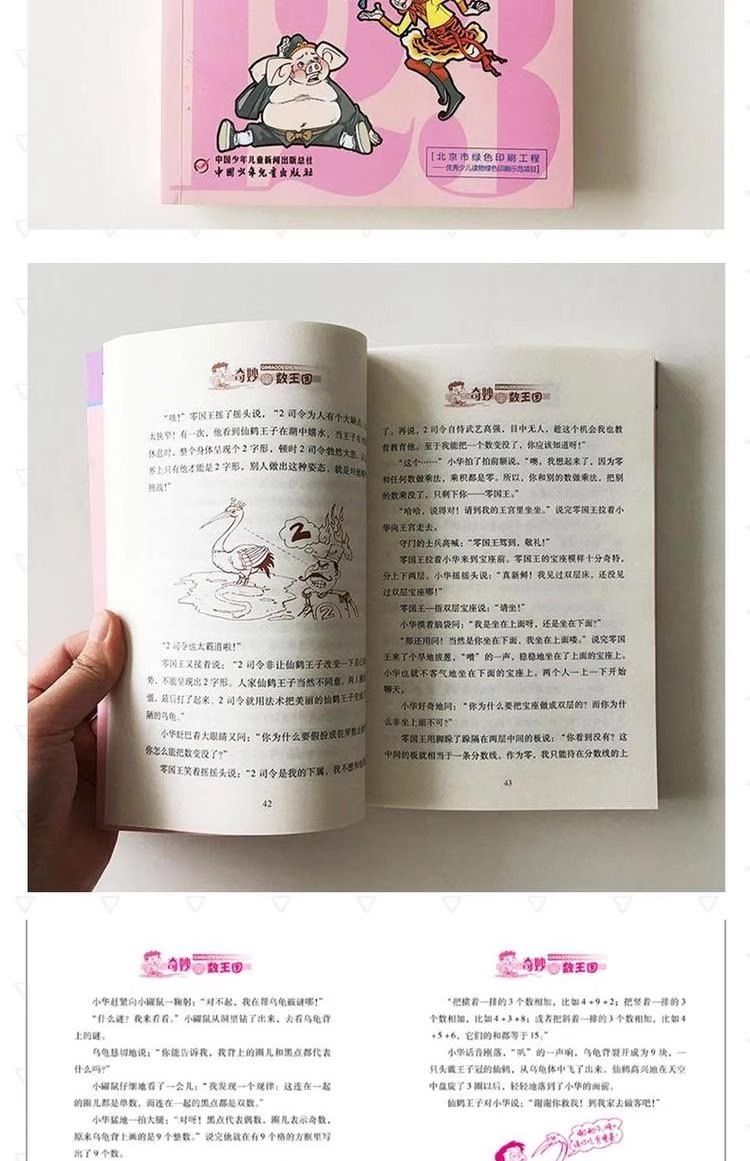 123
中国少年儿童新闻出版总社
中国少年儿童出版社
北京市绿色印刷工程
——优秀少儿读物绿色印刷示范项目
奇妙的数王国
“咳!”零国王摇了摇头说,“2 司令为人有个大缺点,
太狭窄!有一次,他看到仙鹤王子在湖中嬉水,当王子在水
休息时,整个身体呈现个 2 字形,顿时 2 司令勃然大怒,认
界上只有他才能是 2 字形,别人做出这种姿态,就是对他
挑战!”
2
2
“2 司令也太霸道啦!”
零国王又接着说:“2 司令非让仙鹤王子改变一下自己
势,不能呈现出 2 字形。人家仙鹤王子当然不同意,两人越
僵,最后打了起来。2 司令就用法术把美丽的仙鹤王子变成
陋的乌龟。”
小华眨巴着大眼睛又问:“你为什么要假扮成佐罗整
你怎么能把数变没了?”
零国王笑着摇摇头说:“2 司令是我的下属,我不想和他
42
奇妙的数王国
了。再说,2 司令自恃武艺高强,目中无人,趁这个机会我也教
育教育他。至于我能把一个数变没了,你应该知道呀!”
“这个……”小华拍了拍前额说,“噢,我想起来了,因为零
和任何数做乘法,乘积都是零。所以,你和别的数做乘法,把别
的数乘没了,只剩下你——零国王。”
“哈哈,说得对!请到我的王宫里坐坐。”说完零国王拉着小
华向王宫走去。
守门的士兵高喊:“零国王驾到,敬礼!”
零国王拉着小华来到宝座前。零国王的宝座模样十分奇特,
分上下两层。小华摇摇头说:“真新鲜!我见过双层床,还没见
过双层宝座哪!”
零国王一指双层宝座说:“请坐!”
小华摸着脑袋问:“我是坐在上面呀,还是坐在下面?”
“那还用问!当然是你坐在下面,我坐在上面喽。”说完零国
王来了个旱地拔葱,“噌”的一声,稳稳地坐在了上面的宝座上。
小华也就不客气地坐在下面的宝座上。两个人一上一下开始
聊天。
小华好奇地问:“你为什么要把宝座做成双层的?而你为什
么非坐上面不可?”
零国王用脚跺了跺隔在两层中间的板说:“你看到没有?这
中间的板就相当于一条分数线。作为零,我只能待在分数线的上
43
奇妙的数王国
小华赶紧向小鼹鼠一鞠躬:“对不起,我在帮乌龟破谜哪!”
“什么谜?我来看看。”小鼹鼠从洞里钻了出来,去看乌龟背
上的谜。
乌龟恳切地说:“你能告诉我,我背上的圈儿和黑点都代表
什么吗?”
小鼹鼠仔细地看了一会儿:“我发现一个规律:这连在一起
的圈儿都是单数,而连在一起的黑点都是双数。”
小华猛地一拍大腿:“对呀!黑点代表偶数,圈儿表示奇数,
原来乌龟背上画的是 9 个整数。”说完他就在有 9 个格的方框里写
出了 9 个数。
奇妙的数王国
“把横着一排的 3 个数相加,比如 4+9+2;把竖着一排的 3
个数相加,比如 4+3+8;或者把斜着一排的 3 个数相加,比如 4
+5+6,它们的和都等于 15。”
小华话音刚落,“叭”的一声响,乌龟背裂开成为 9 块,一
只头戴王子冠的仙鹤,从乌龟体中飞了出来。仙鹤高兴地在天空
中盘旋了 3 圈以后,轻轻地落到了小华的面前。
仙鹤王子对小华说:“谢谢你救我!到我家去做客吧!”